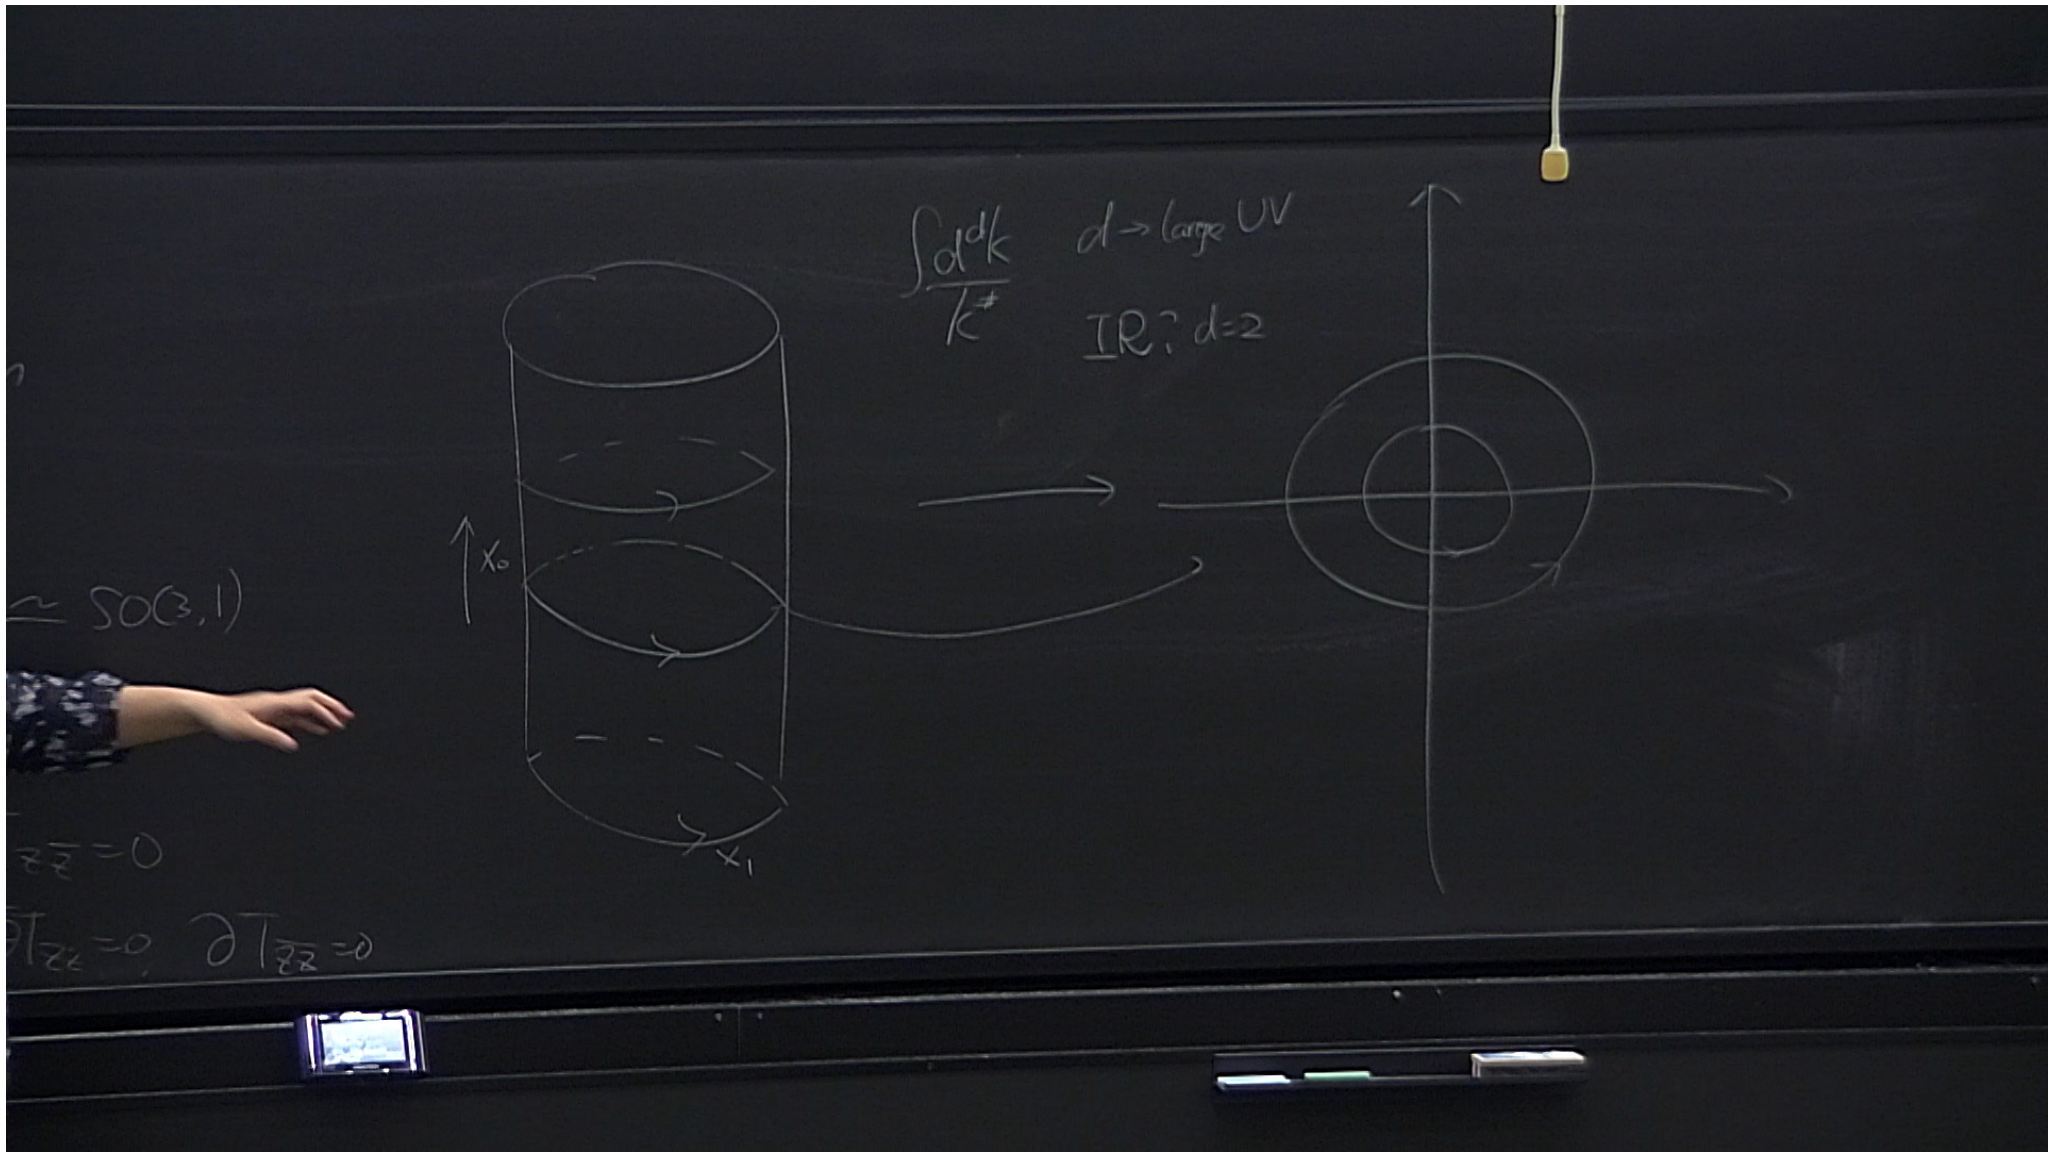 ∫ d^d k / k^#   d → large UV
IR? d=2
x₀
≃ SO(3,1)
x₁
z z̄ = 0
T_zz = 0, ∂T_z̄z̄ = 0